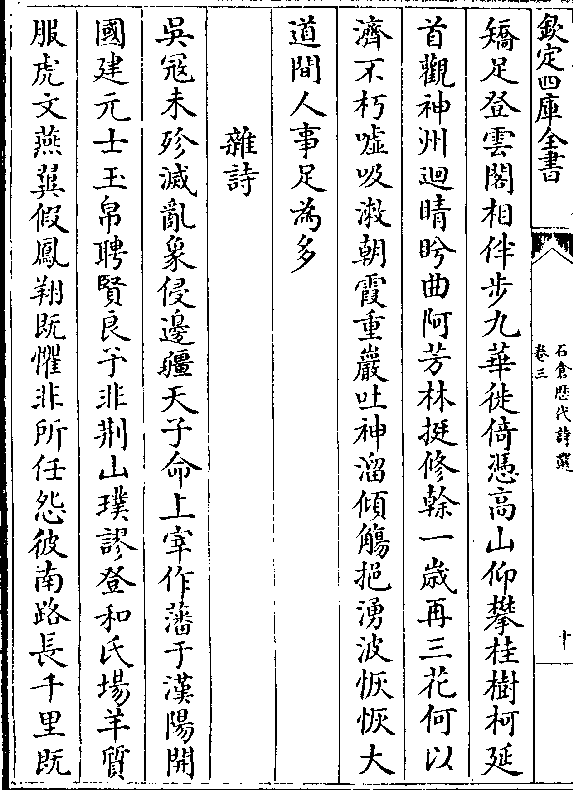 欽定四庫全書
石倉歷代詩選
卷三
十
矯足登雲閣相伴步九華徙倚憑高山仰攀桂樹柯延
首觀神州迴晴盻曲阿芳林挺修榦一歳再三花何以
濟不朽噓吸漱朝霞重巖吐神溜傾觴挹湧波恢恢大
道間人事足為多
雜詩
吳冦未殄滅亂象侵邊疆天子命上宰作藩于漢陽開
國建元士玉帛聘賢良予非荆山璞謬登和氏場羊質
服虎文燕翼假鳳翔既懼非所任怨彼南路長千里既